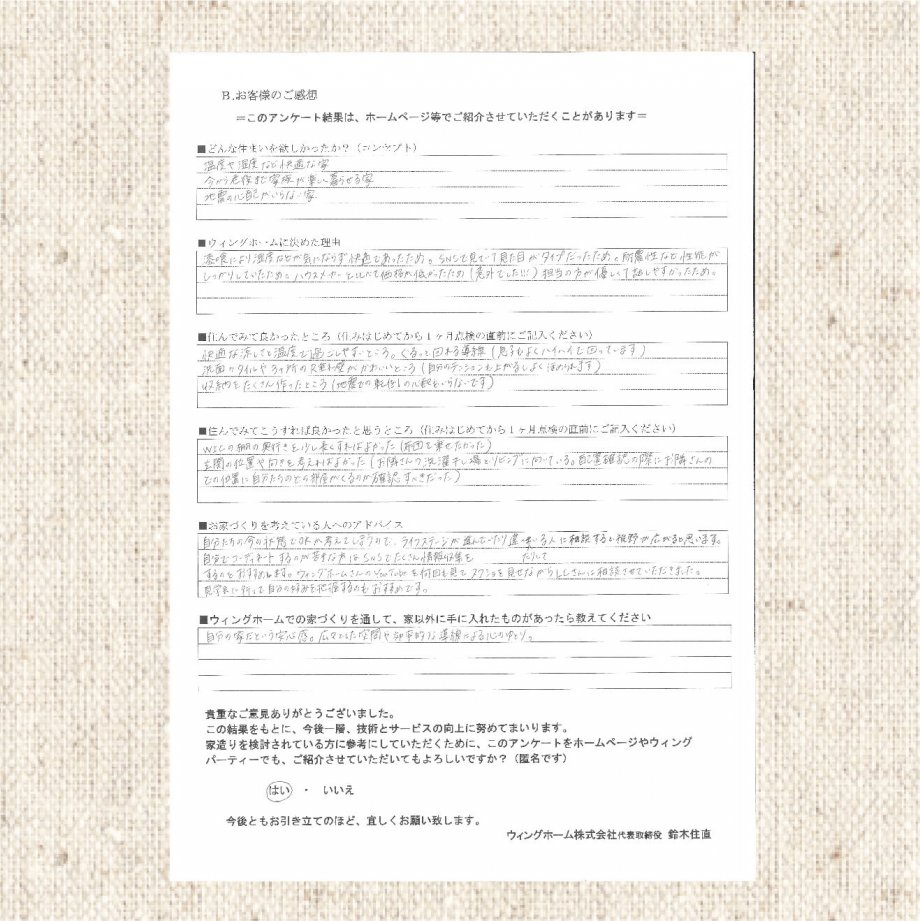 B.お客様のご感想
＝このアンケート結果は、ホームページ等でご紹介させていただくことがあります＝
■どんな住まいを欲しかったか？（コンセプト）
温度や湿度など快適な家
今から老後まで家族が楽しく暮らせる家
地震の心配がいらない家
■ウィングホームに決めた理由
により湿度などが気にならず快適であったため。SNSで見ていて見た目がタイプだったため。耐震性など性能が
しっかりしていたため。ハウスメーカーと比べて価格が低かったため（意外でした!!!）担当の方が優しくて話しやすかったため。
■住んでみて良かったところ（住みはじめてから１ヶ月点検の直前にご記入ください）
快適な涼しさと温度で過ごしやすいところ。くるっと回れる導線（息子もよくハイハイで回っています）
洗面のタイルや3ヶ所の壁がかわいいところ（自分のテンションも上がるしよく褒められます）
収納をたくさん作ったところ（地震での転倒の心配もいらないです）
■住んでみてこうすれば良かったと思うところ（住みはじめてから１ヶ月点検の直前にご記入ください）
WICの棚の奥行きを少し長くすればよかった（布団を乗せたかった）
玄関の位置や向きを考えればよかった（お隣さんの洗濯干し場とリビングに向いている。配置確認の際にお隣さんの
どの位置に自分たちのどの部屋がくるのか確認すべきだった）
■お家づくりを考えている人へのアドバイス
自分たちの今の状態でOKか考えてしまうので、ライフステージが進んでいたり違う人に相談すると視野が広がると思います。
自分でコーディネートするのが苦手な方はSNSでたくさん情報収集を たりして
するのをおすすめします。ウィングホームさんのYouTubeを何回も見てスクショを見せながらLLさんに相談させていただきました。
見学会に行って自分の好みを把握するのもおすすめです。
■ウィングホームでの家づくりを通して、家以外に手に入れたものがあったら教えてください
自分の家だという安心感。広々とした空間や効率的な導線による心のゆとり。
貴重なご意見ありがとうございました。
この結果をもとに、今後一層、技術とサービスの向上に努めてまいります。
家造りを検討されている方に参考にしていただくために、このアンケートをホームページやウィング
パーティーでも、ご紹介させていただいてもよろしいですか？（匿名です）
はい ・ いいえ
今後ともお引き立てのほど、宜しくお願い致します。
ウィングホーム株式会社代表取締役 鈴木住直